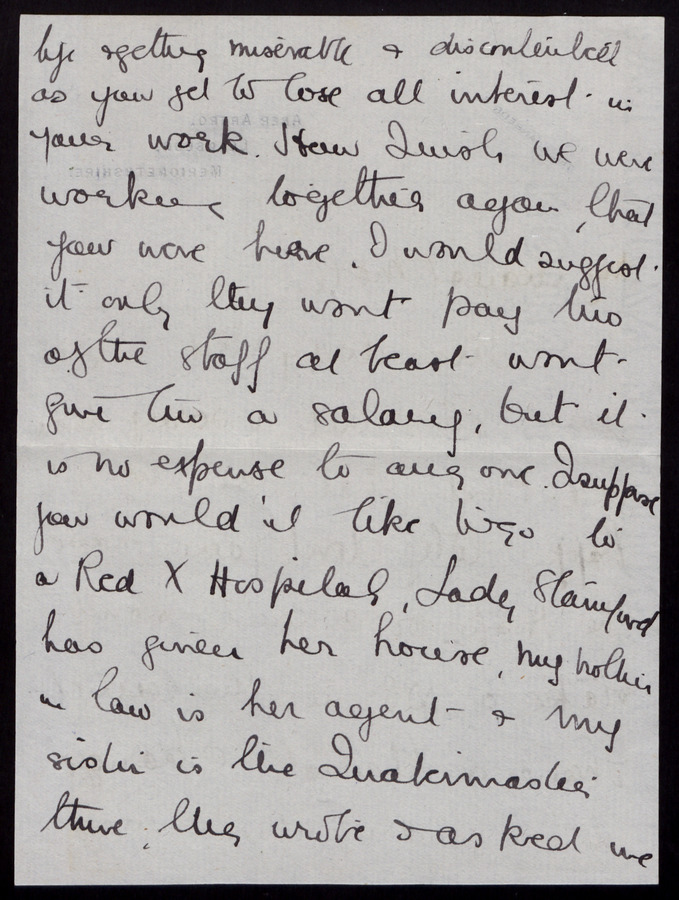 life & getting miserable & discontented
as you get to lose all interest in
your work. How I wish we were
working together again, that
you were here. I would suggest
it only they wont pay two
of the staff at least wont
give two a salary, but it
is no expense to any one. I suppose
you would'nt like to go to
a Red X Hospital, Lady Stamford
has given her house, my brother
in law is her agent & my
sister is the Quartermaster
there, they wrote & asked me